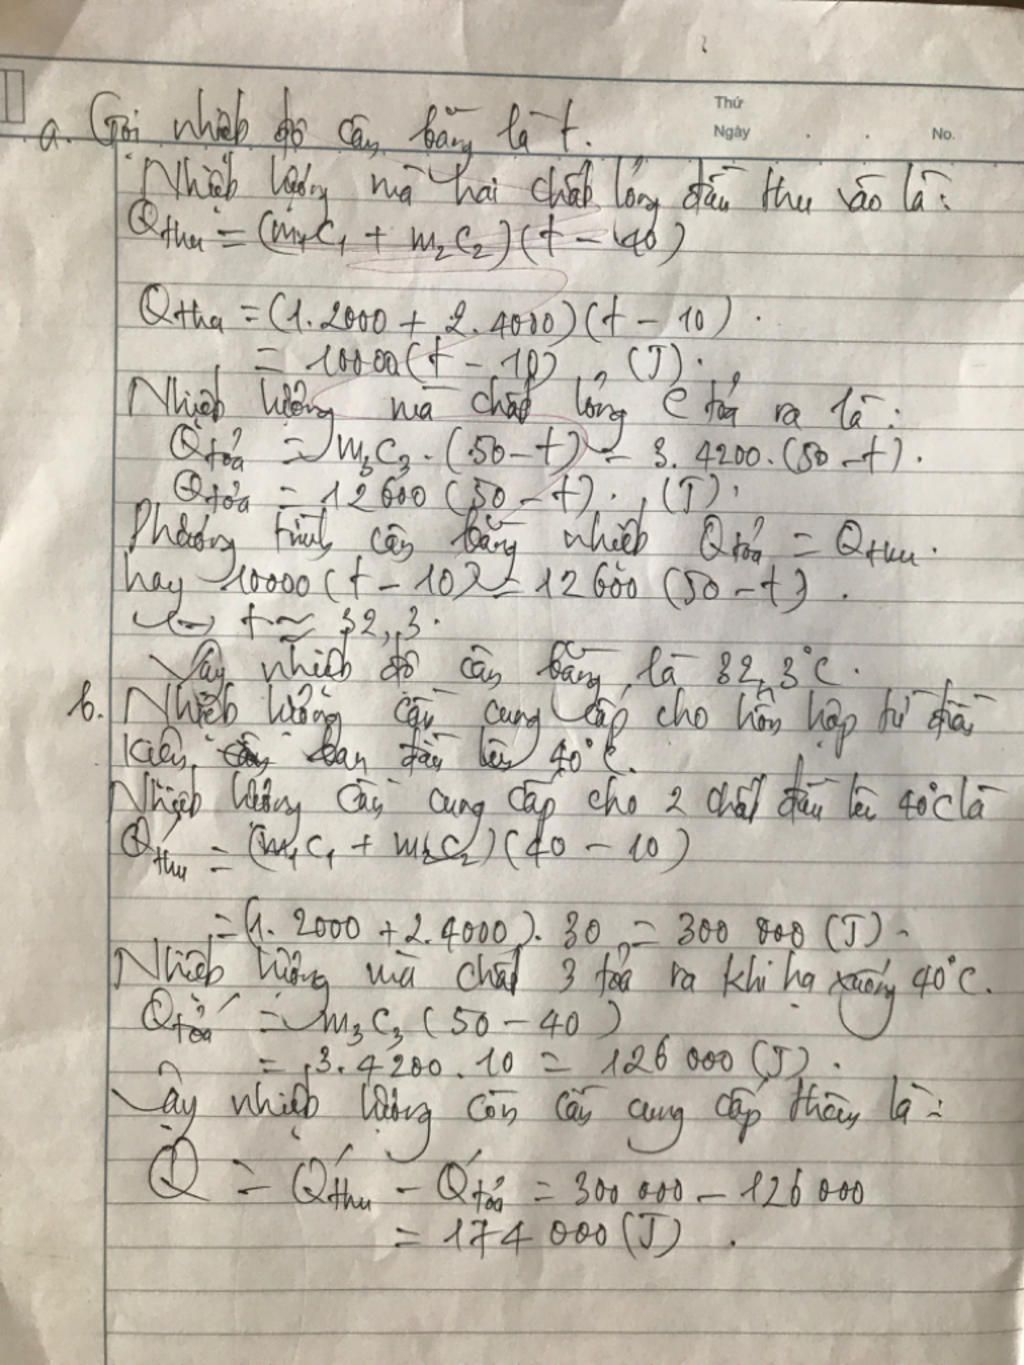 Thứ
Ngày . . No.
a. Gọi nhiệt độ cân bằng là t.
Nhiệt lượng mà hai chất lỏng đầu thu vào là:
Qthu = (m1c1 + m2c2)(t - 40)
Qtha = (1.2000 + 2.4000)(t - 10).
= 10000(t - 10) (J).
Nhiệt lượng mà chất lỏng tỏa ra là:
Qtỏa = m3c3.(50-t) = 3.4200.(50-t).
Qtỏa = 12600(50-t). (J).
Phương trình cân bằng nhiệt Qtỏa = Qthu.
hay 10000(t - 10) = 12600(50-t).
↔ t ≈ 32,3.
Vậy nhiệt độ cân bằng là 32,3°C.
b. Nhiệt lượng cần cung cấp cho hỗn hợp từ điều
kiện ban đầu lên 40°C.
Nhiệt lượng cần cung cấp cho 2 chất đầu lên 40°C là
Q'thu = (m1c1 + m2c2)(40 - 10)
= (1.2000 + 2.4000).30 = 300 000 (J).
Nhiệt lượng mà chất 3 tỏa ra khi hạ xuống 40°C.
Q'tỏa = m3c3(50-40)
= 3.4200.10 = 126 000 (J).
Vậy nhiệt lượng còn cần cung cấp thêm là:
Q = Q'thu - Q'tỏa = 300 000 - 126 000
= 174 000 (J).